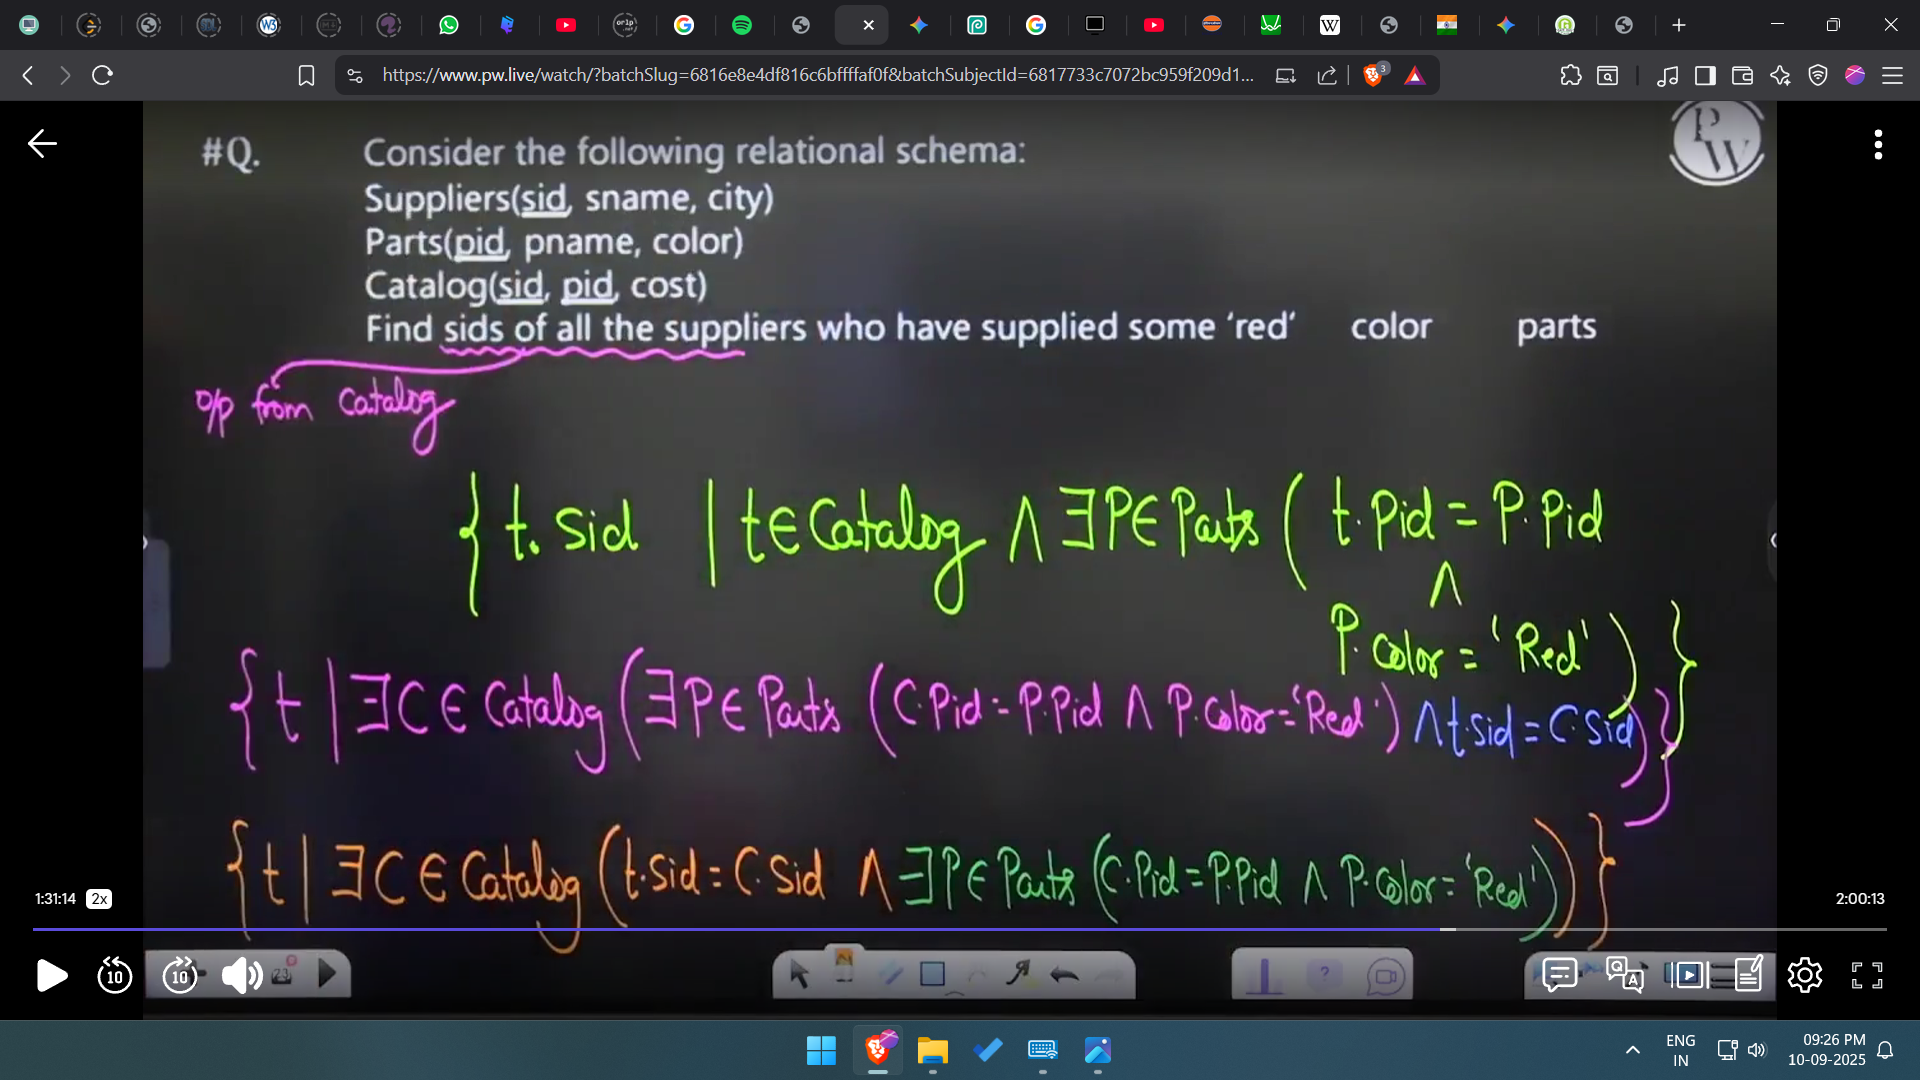 https://www.pw.live/watch/?batchSlug=6816e8e4df816c6bffffaf0f&batchSubjectId=6817733c7072bc959f209d1...
3
PW
#Q. Consider the following relational schema:
Suppliers(sid, sname, city)
Parts(pid, pname, color)
Catalog(sid, pid, cost)
Find sids of all the suppliers who have supplied some ‘red’ color parts
o/p from Catalog
{ t.sid | t∈Catalog ∧ ∃P∈Parts ( t.pid = P.pid
∧
P.color = 'Red' ) }
{ t | ∃C∈Catalog(∃P∈Parts (C.Pid = P.Pid ∧ P.color='Red') ∧ t.sid = C.Sid)}
{ t | ∃C∈Catalog (t.sid = C.Sid ∧ ∃P∈Parts (C.Pid=P.Pid ∧ P.color='Red'))}
1:31:14 2x
2:00:13
10 10
23
ENG
IN
09:26 PM
10-09-2025